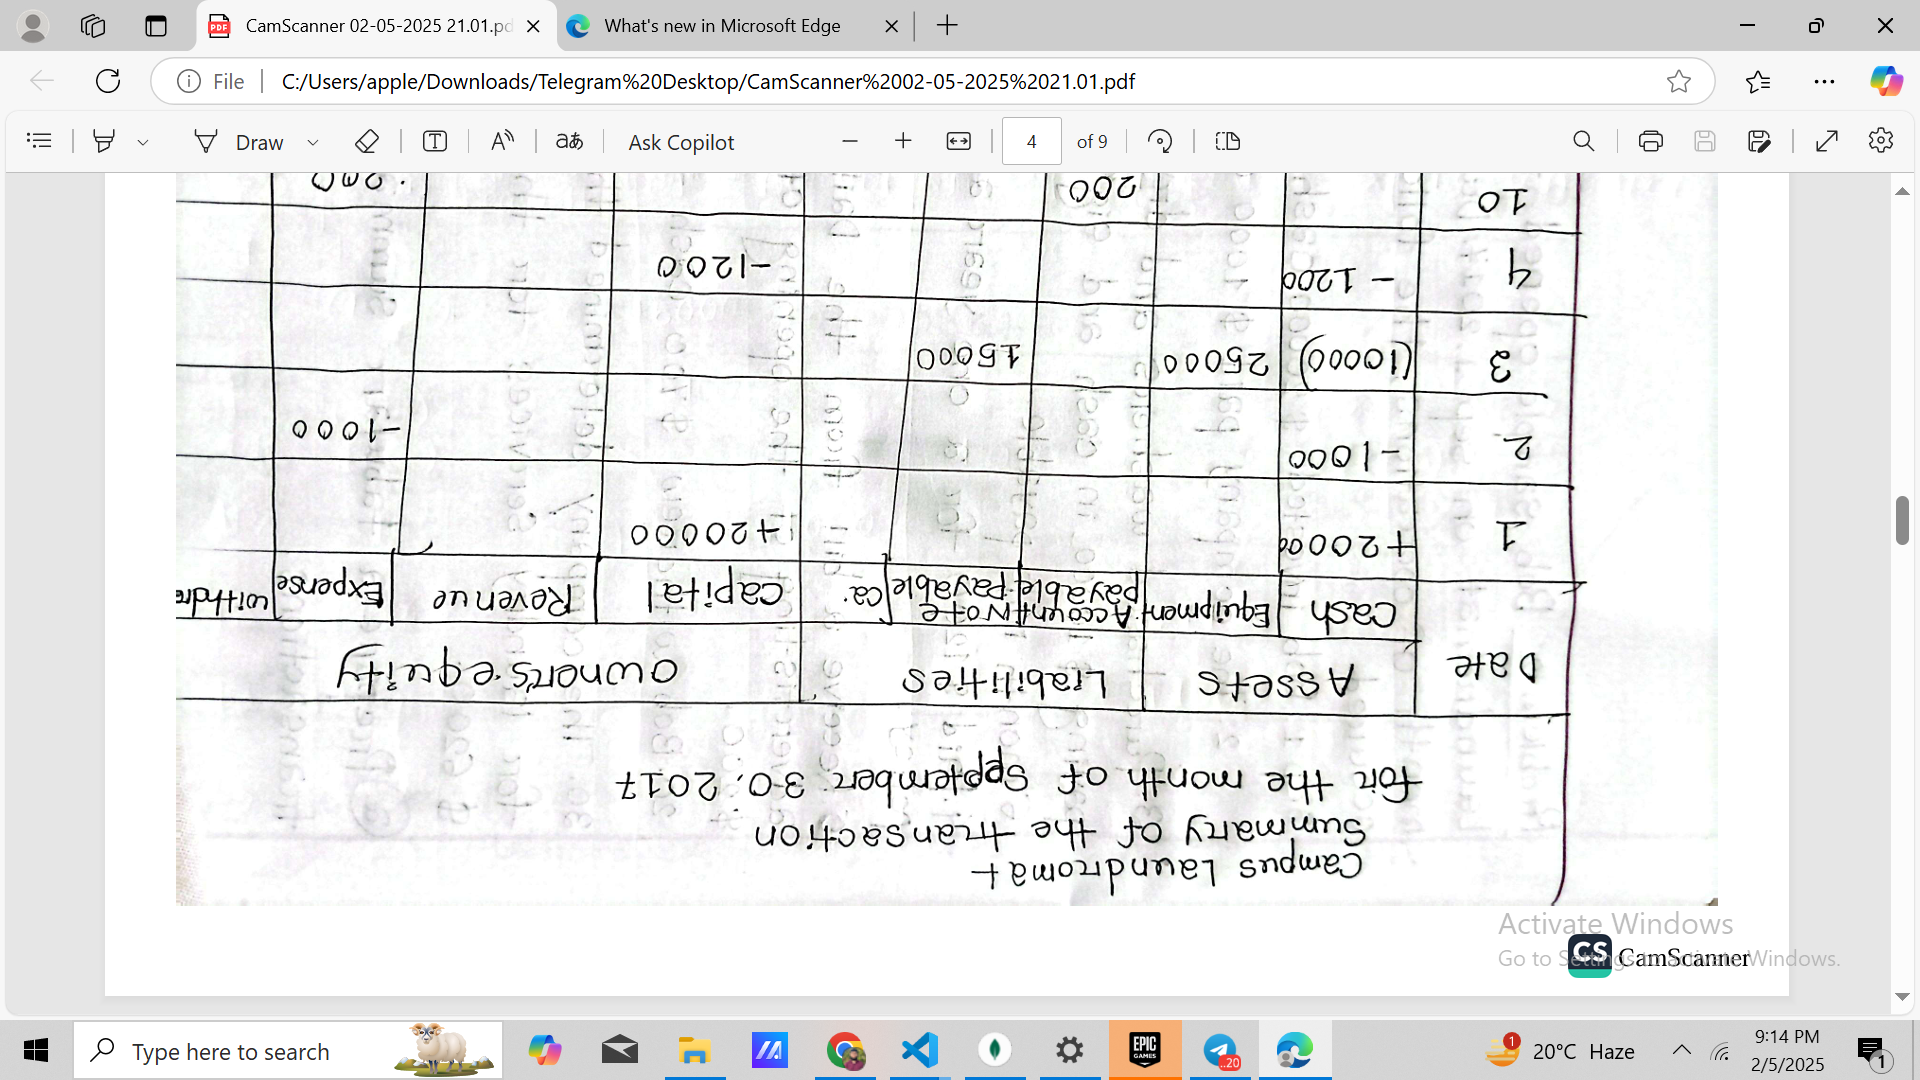 CamScanner 02-05-2025 21.01.pd
What's new in Microsoft Edge
File
C:/Users/apple/Downloads/Telegram%20Desktop/CamScanner%2002-05-2025%2021.01.pdf
Draw
Ask Copilot
4
of 9
Campus Laundromat
Summary of the transaction
for the month of September 30, 2017
Date Assets Liabilities owner's equity
Cash Equipmen Account payable Note payable Ca. Capital Revenue Expense withdra
1 +20000 +20000
2 -1000 -1000
3 (10000) 25000 15000
4 - 1200 -1200
10 200 200
CS CamScanner
Activate Windows
Go to Settings to activate Windows.
Type here to search
EPIC GAMES
..20
1
20°C Haze
9:14 PM
2/5/2025
1